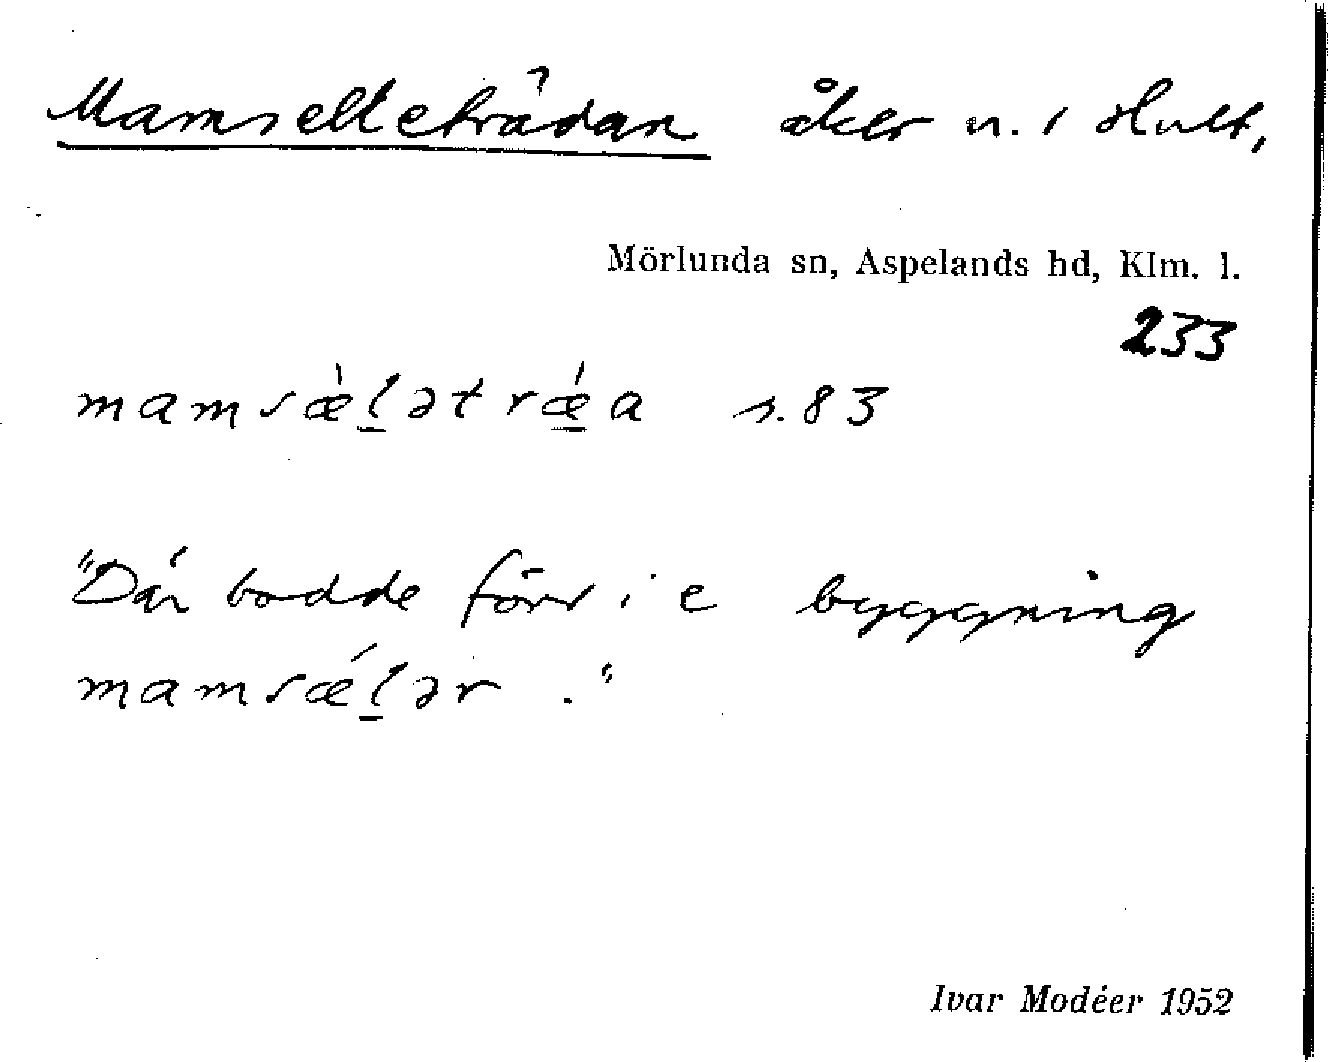 Mamselleträdan åker n. i Hult,
Mörlunda sn, Aspelands hd, Klm. l.
233
mamsæ̀l̲ətrǽ̲a s. 83
"Där bodde förr i e byggning
mamsǽl̲ər."
Ivar Modéer 1952